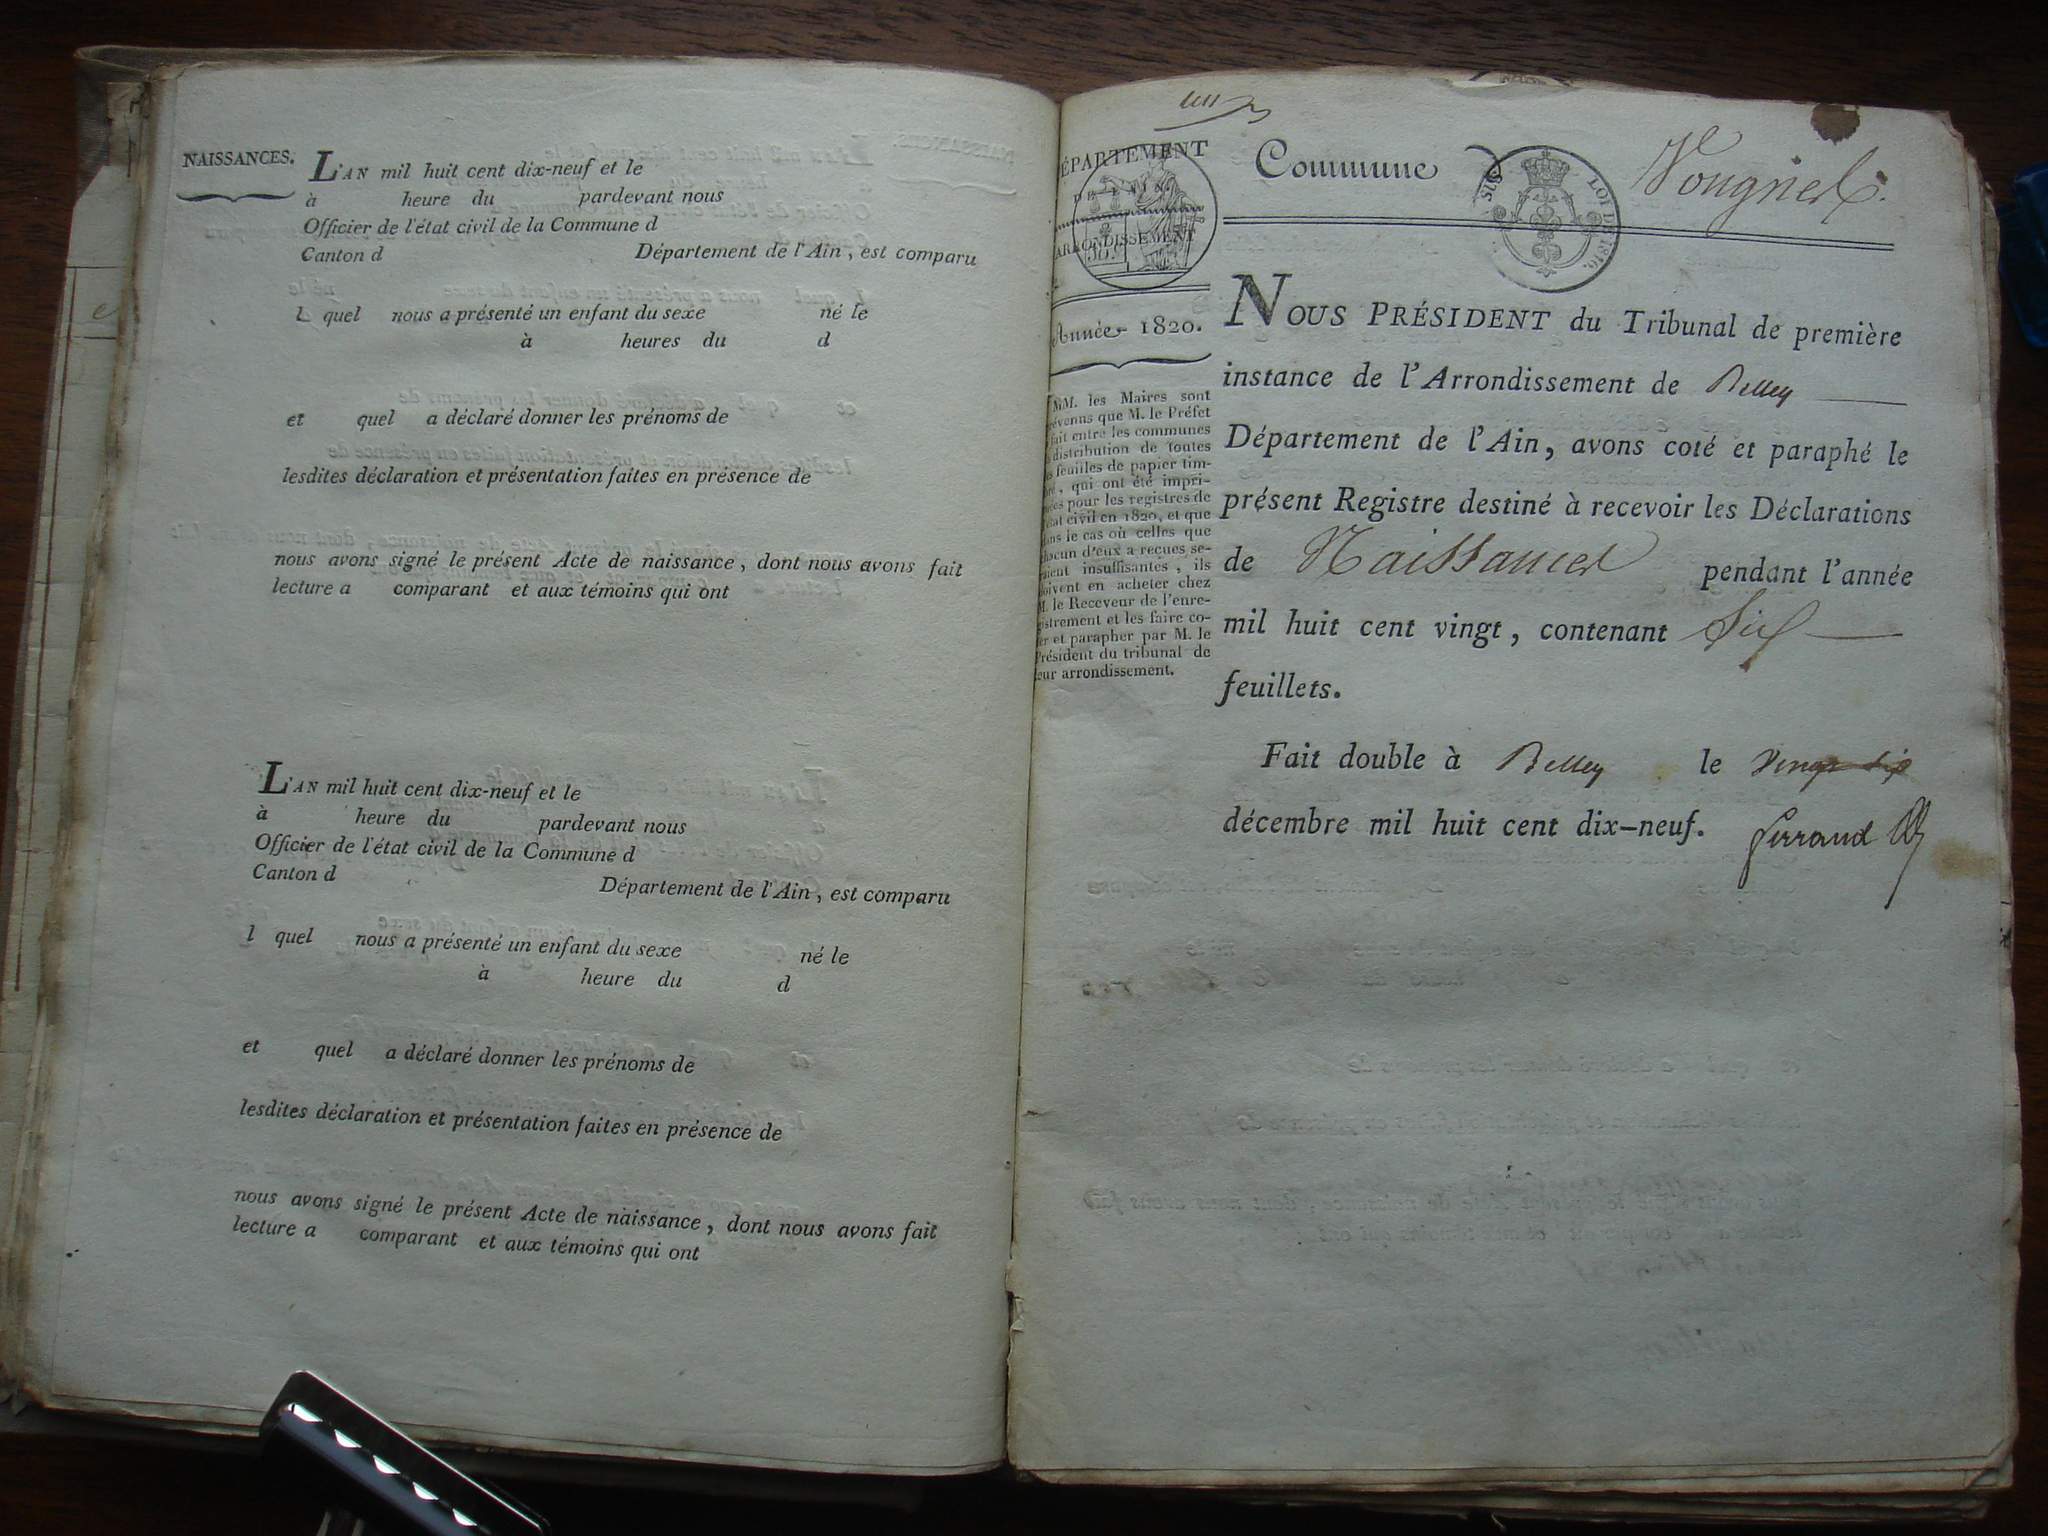 NAISSANCES.
L'AN mil huit cent dix-neuf et le
à heure du pardevant nous
Officier de l'état civil de la Commune d
Canton d Département de l'Ain, est comparu
l quel nous a présenté un enfant du sexe né le
à heures du d
et quel a déclaré donner les prénoms de
lesdites déclaration et présentation faites en présence de
nous avons signé le présent Acte de naissance, dont nous avons fait
lecture a comparant et aux témoins qui ont
L'AN mil huit cent dix-neuf et le
à heure du pardevant nous
Officier de l'état civil de la Commune d
Canton d Département de l'Ain, est comparu
l quel nous a présenté un enfant du sexe né le
à heure du d
et quel a déclaré donner les prénoms de
lesdites déclaration et présentation faites en présence de
nous avons signé le présent Acte de naissance, dont nous avons fait
lecture a comparant et aux témoins qui ont
un
ÉPARTEMENT
DE L'AIN.
ARRONDISSEMENT
Année 1820.
MM. les Maires sont
évenus que M. le Préfet
fait entre les communes
distribution de toutes
s feuilles de papier tim-
ré, qui ont été impri-
ées pour les registres de
tat civil en 1820, et que
ans le cas où celles que
hacun d'eux a reçues se-
raient insuffisantes, ils
oivent en acheter chez
M. le Receveur de l'enre-
gistrement et les faire co-
er et parapher par M. le
Président du tribunal de
eur arrondissement.
Commune d
LOI DE 1816.
Vougnes.
NOUS PRÉSIDENT du Tribunal de première
instance de l'Arrondissement de Belley
Département de l'Ain, avons coté et paraphé le
présent Registre destiné à recevoir les Déclarations
de Naissances pendant l'année
mil huit cent vingt, contenant Six
feuillets.
Fait double à Belley le vingt six
décembre mil huit cent dix-neuf. ferraud